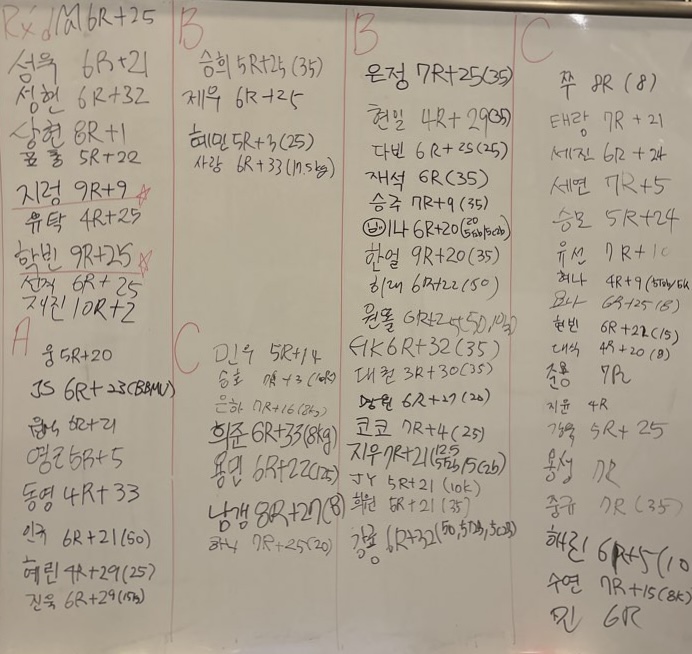 Rx'd
M 6R+25
성욱 6R+21
성현 6R+32
상현 8R+1
5R+22
지렁 9R+9
유탁 4R+25
학빈 9R+25
6R+25
재진 10R+2
A
웅 5R+20
JS 6R+23(BBMU)
6R+21
영근 5R+5
동영 4R+33
인규 6R+21(50)
예린 4R+29(25)
진욱 6R+29(15kg)
B
승희 5R+25(35)
제우 6R+25
혜민 5R+3(25)
사랑 6R+33(17.5kg)
C
민우 5R+14
승호
은하 7R+16(8kg)
희준 6R+33(8kg)
용민 6R+22(125)
남갱 8R+27(8)
하니 7R+25(20)
B
은정 7R+25(35)
현일 4R+29(35)
다빈 6R+25(25)
재석 6R(35)
승주 7R+9(35)
이나 6R+20
한얼 9R+20(35)
희래 6R+22(50)
원돌
HK 6R+32(35)
대천 3R+30(35)
6R+27(20)
코코 7R+4(25)
지우 7R+21
JY 5R+21(10k)
희원 5R+21(35)
6R+32
C
쭈 8R(8)
태랑 7R+21
세진 6R+24
세연 7R+5
승모 5R+24
유선 7R+10
하나 4R+9
요나 6R+25(8)
현빈 6R+22(15)
대식 4R+20(8)
준용 7R
지윤 4R
5R+25
용성 7R
중규 7R(35)
해린 6R+5(10
수연 7R+15(8k)
찐 6R